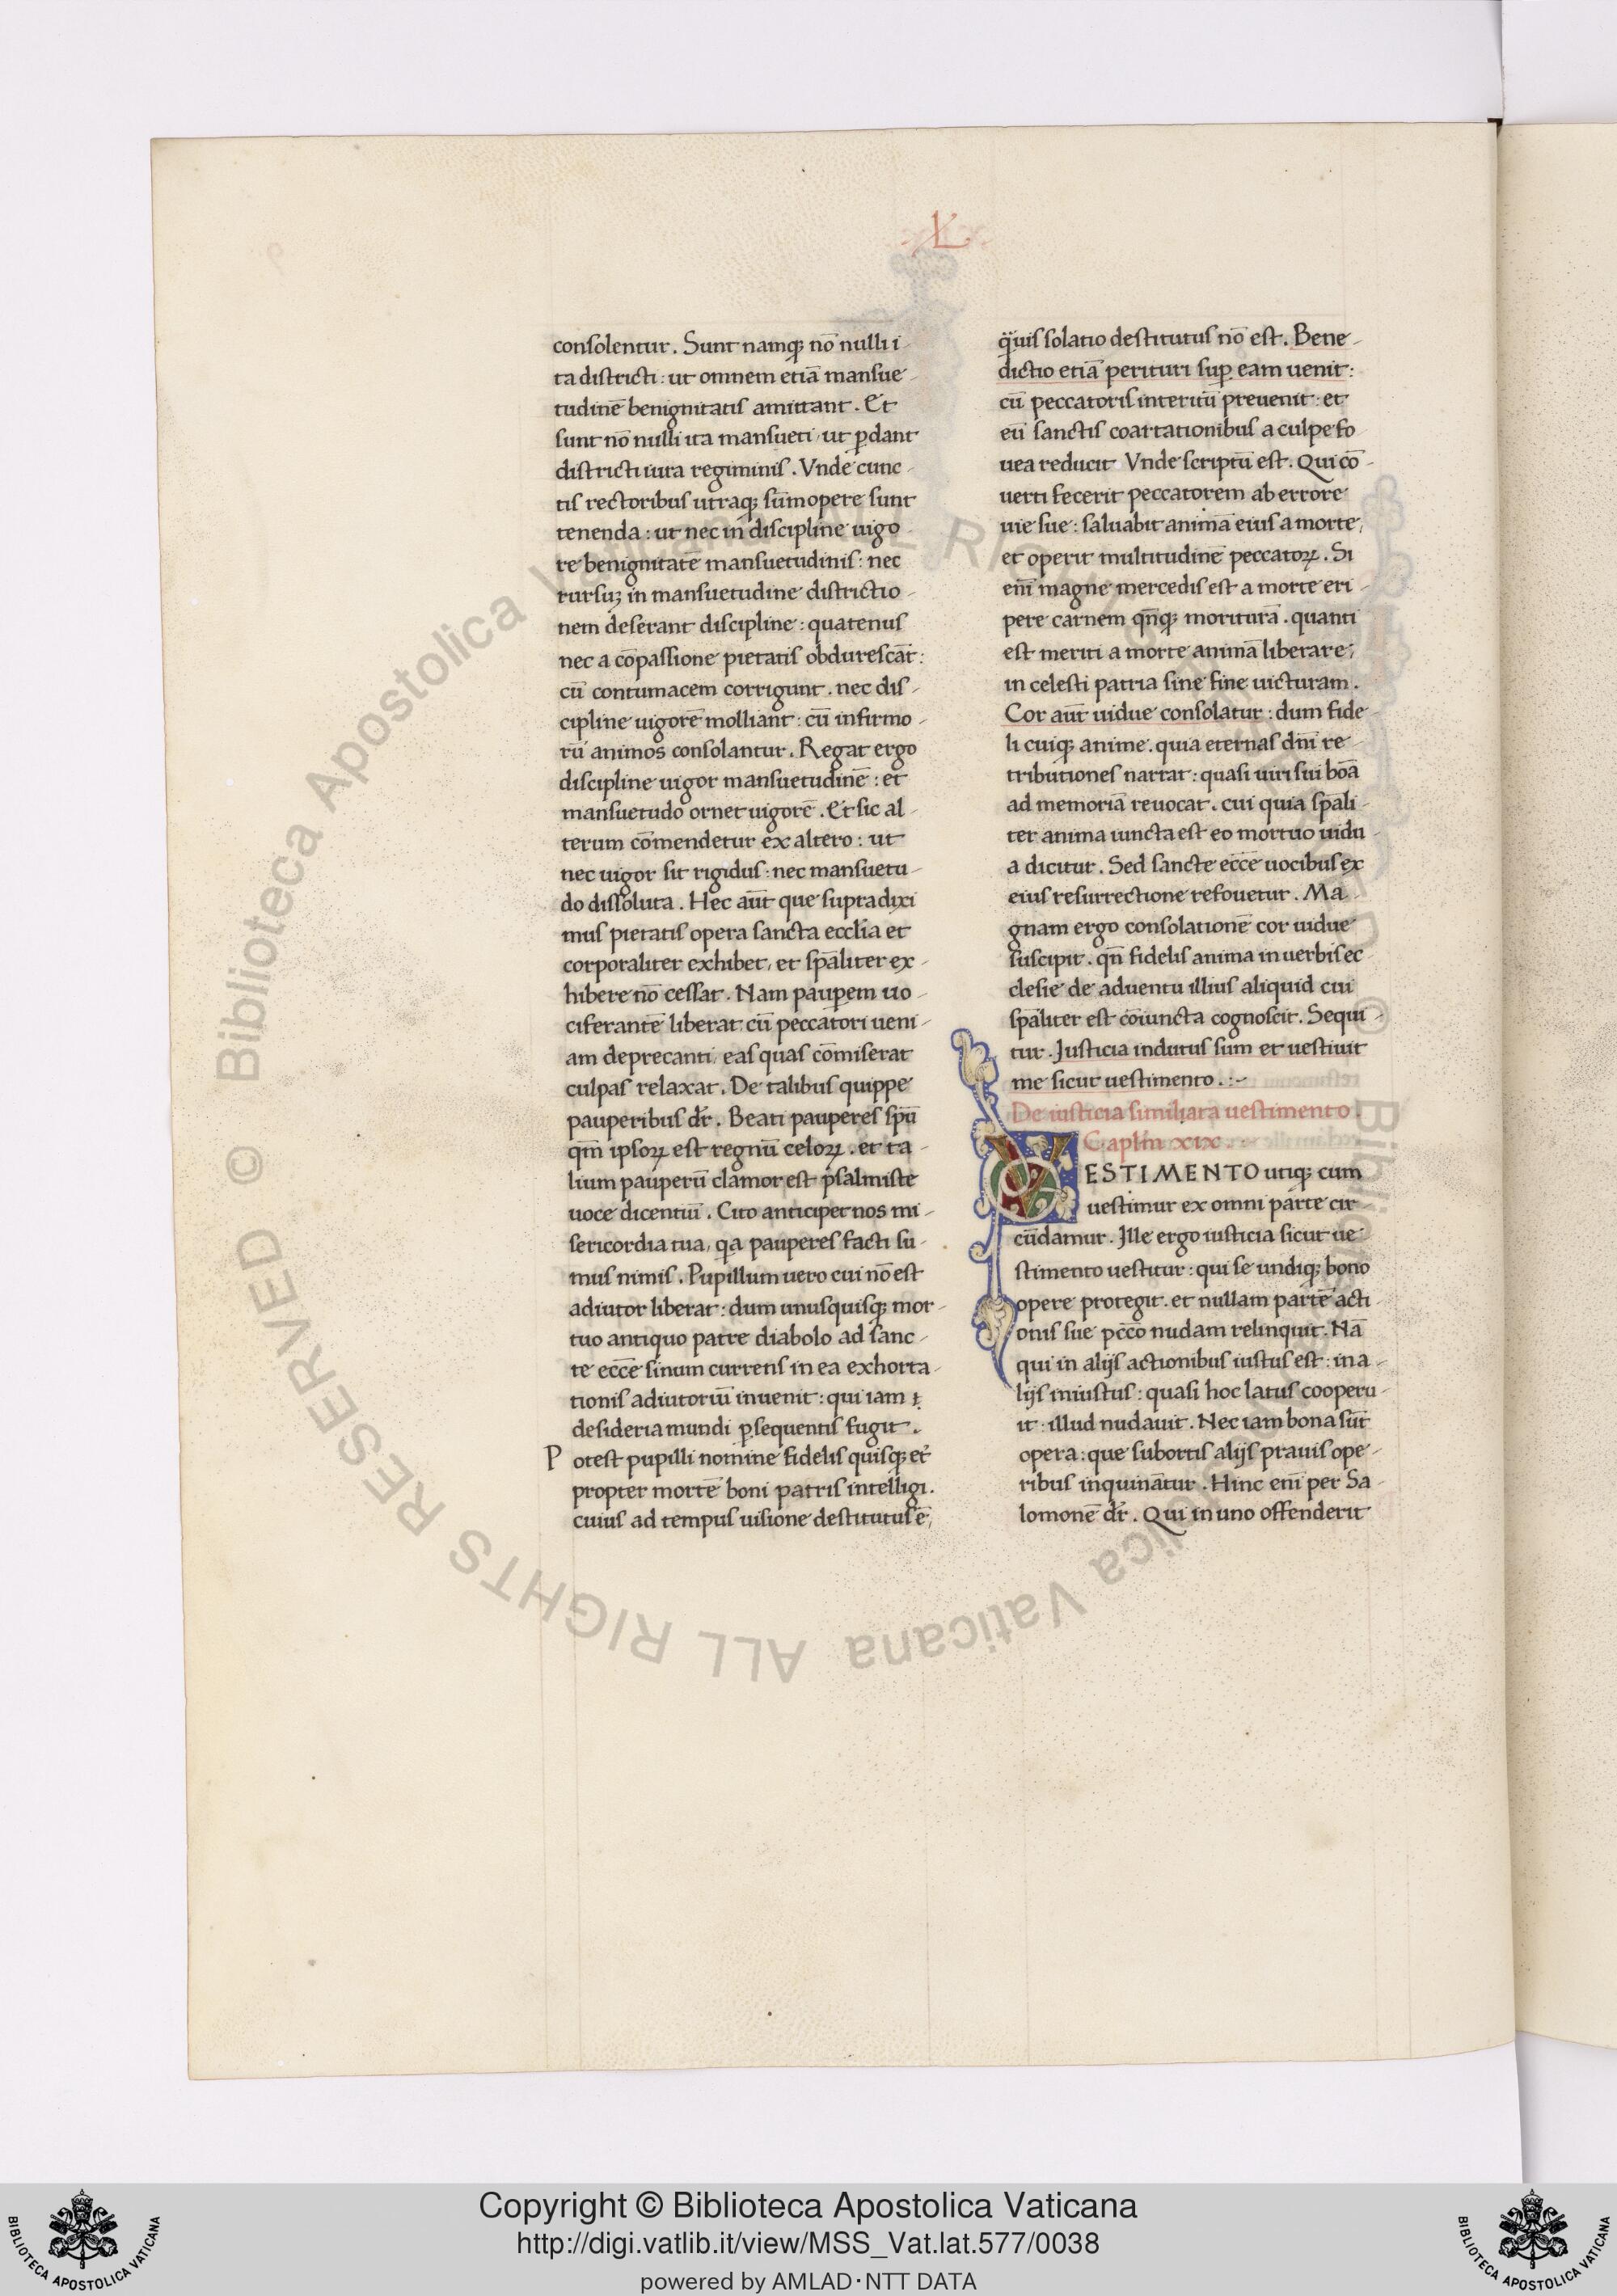 L
consolentur. Sunt namq; nō nulli i-
ta districti: ut omnem etiā mansue-
tudinē benignitatis amittant. Et
sunt nō nulli ita mansueti, ut ꝑdant
districti iura regiminis. Vnde cunc-
tis rectoribus utraq; sūmopere sunt
tenenda: ut nec in discipline uigo-
re benignitatē mansuetudinis: nec
rursuꝫ in mansuetudine districtio-
nem deserant discipline: quatenus
nec a cōpassione pietatis obdurescāt:
cū contumacem corrigunt. nec dis-
cipline uigorē molliant: cū infirmo-
rū animos consolantur. Regat ergo
discipline uigor mansuetudinē: et
mansuetudo ornet uigorē. Et sic al-
terum cōmendetur ex altero: ut
nec uigor sit rigidus: nec mansuetu-
do dissoluta. Hec aūt que supra dixi
mus pietatis opera sancta ecclīa et
corporaliter exhibet, et spāliter ex-
hibere nō cessat. Nam pauꝑem uo-
ciferantē liberat: cū peccatori ueni-
am deprecanti, eas quas cōmiserat
culpas relaxat. De talibus quippe
pauperibus dr̄. Beati pauperes spū
qm̄ ipsoꝝ est regnū celoꝝ. et ta-
lium pauperū clamor est psalmiste
uoce dicentiū. Cito anticipet nos mi-
sericordia tua, qa pauperes facti su-
mus nimis. Pupillum uero cui nō est
adiutor liberat: dum unusquisq; mor-
tuo antiquo patre diabolo ad sanc-
te ecc̄e sinum currens in ea exhorta-
tionis adiutoriū inuenit: qui iam
desideria mundi ꝑsequentis fugit.
Potest pupilli nomine fidelis quisq; et
propter mortē boni patris intelligi.
cuius ad tempus uisione destitutus ē,
quis solatio destitutus nō est. Bene-
dictio etiā perituri suꝑ eam uenit:
cū peccatoris interitū preuenit: et
eū sanctis coartationibus a culpe fo
uea reducit Vnde scriptū est. Qui cō-
uerti fecerit peccatorem ab errore
uie sue: saluabit animā eius a morte,
et operit multitudinē peccatoꝝ. Si
eni̅ magne mercedis est a morte eri-
pere carnem qn̄q; moriturā. quanti
est meriti a morte animā liberare,
in celesti patria sine fine uicturam.
Cor aūt uidue consolatur: dum fide-
li cuiq; anime. quia eternas dn̄i re-
tributiones narrat: quasi uiri sui bōa
ad memoriā reuocat. cui quia spāli-
ter anima iuncta est eo mortuo uidu-
a dicitur. Sed sancte ecc̄e uocibus ex
eius resurrectione refouetur. Ma-
gnam ergo consolationē cor uidue
suscipit. qn̄ fidelis anima in uerbis ec-
clesie de aduentu illius aliquid cui
spāliter est cōiuncta cognoscit. Sequi-
tur. Justicia indutus sum et uestiuit
me sicut uestimento.:-
De iusticia similiata uestimento.
Caplm̄ xix.
VESTIMENTO utiq; cum
uestimur ex omni parte cir-
cūdamur. Ille ergo iusticia sicut ue-
stimento uestitur: qui se undiq; bono
opere protegit. et nullam partē acti-
onis sue pcc̄o nudam relinquit. Nā
qui in alijs actionibus iustus est: in a-
lijs iniustus: quasi hoc latus cooperu-
it: illud nudauit. Nec iam bona sūt
opera: que subortis alijs prauis ope-
ribus inquināntur. Hinc eni̅ per Sa-
lomonē dr̄. Qui in uno offenderit
© Biblioteca Apostolica Vaticana ALL RIGHTS RESERVED
Copyright © Biblioteca Apostolica Vaticana
http://digi.vatlib.it/view/MSS_Vat.lat.577/0038
powered by AMLAD·NTT DATA
BIBLIOTECA APOSTOLICA VATICANA
BIBLIOTECA APOSTOLICA VATICANA